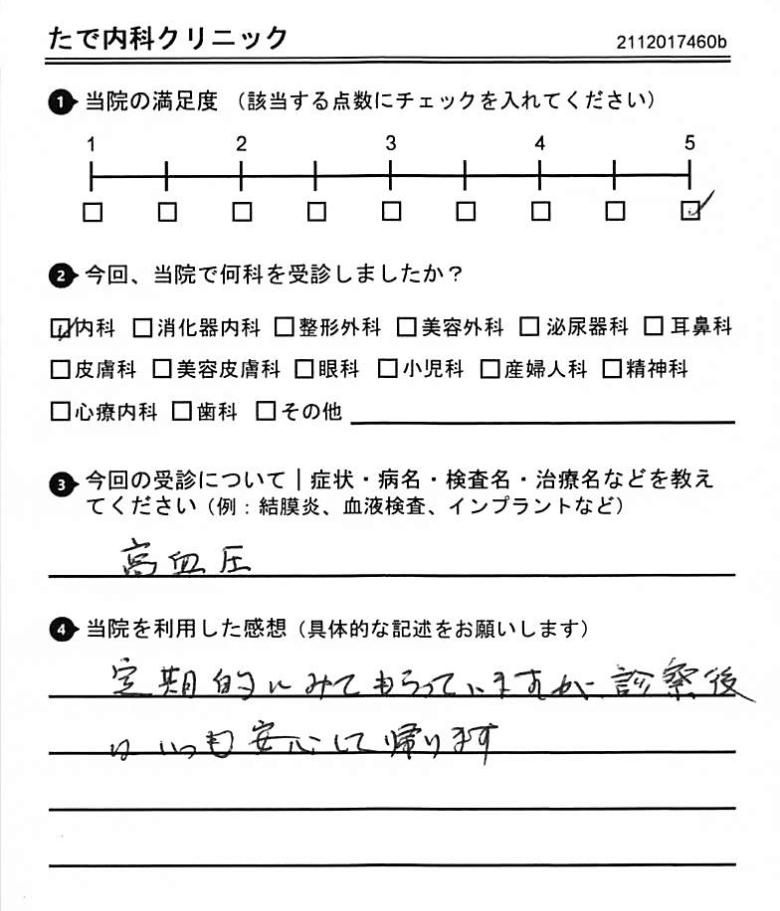 たで内科クリニック 2112017460b
❶ 当院の満足度 （該当する点数にチェックを入れてください）
1 2 3 4 5
□ □ □ □ □ □ □ □ ☑
❷ 今回、当院で何科を受診しましたか？
☑内科 □消化器内科 □整形外科 □美容外科 □泌尿器科 □耳鼻科
□皮膚科 □美容皮膚科 □眼科 □小児科 □産婦人科 □精神科
□心療内科 □歯科 □その他
❸ 今回の受診について｜症状・病名・検査名・治療名などを教え
てください（例：結膜炎、血液検査、インプラントなど）
高血圧
❹ 当院を利用した感想（具体的な記述をお願いします）
定期的にみてもらっていますが、診察後
はいつも安心して帰ります